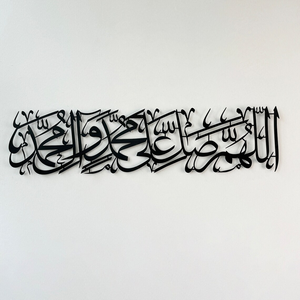 اللّٰهُمَّ صَلِّ عَلَى مُحَمَّدٍ وَآلِ مُحَمَّدٍ